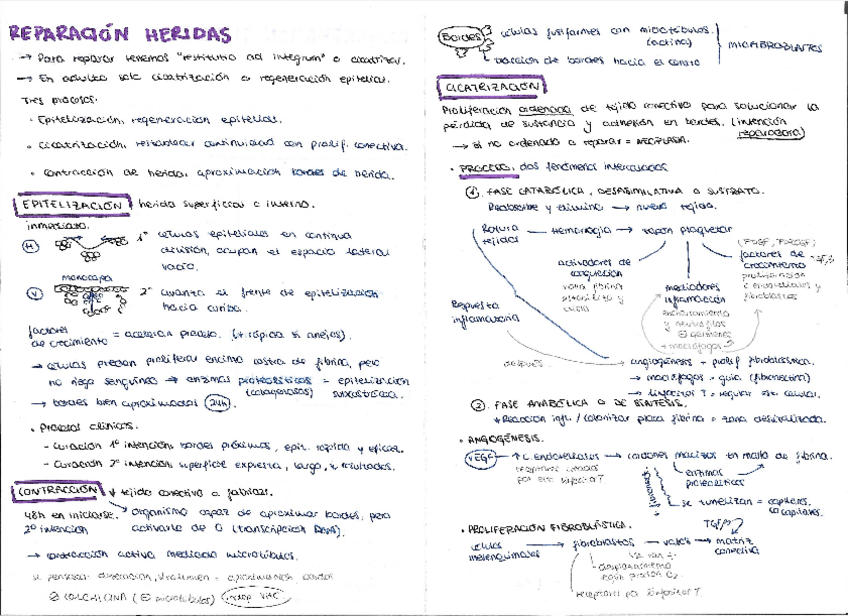 REPARACIÓN HERIDAS
→ Para reparar tenemos "restitutio ad integrum" o cicatrizar.
→ En adulto solo cicatrización o regeneración epitelial.
Tres procesos:
· Epitelización, regeneración epitelios.
· Cicatrización, restablecer continuidad con prolif. conectiva.
· Contracción de herida, aproximación bordes de herida.
EPITELIZACIÓN herida superficial o interno.
inmediato.
H 1º células epiteliales en continua
división, ocupan el espacio lateral
vacío.
monocapa
V 2º avanza el frente de epitelización
hacia arriba.
factores
de crecimiento = aceleran proceso. (+ rápida si anejos).
→ células precian prolifera encima costra de fibrina, pero
no riego sanguíneo → enzimas proteolíticas = epitelización
(colagenasas) subcostrosa.
→ bordes bien aproximados 24h
· Procesos clínicos.
- Curación 1ª intención: bordes próximos, epit. rápida y eficaz.
- Curación 2ª intención: superficie expuesta, largo, resultados.
CONTRACCIÓN ↓ tejido conectivo a fabricar.
48h en iniciarse. Organismo capaz de aproximar bordes, pero
2ª intención activarlo de 0 (transcripción
→ contracción activa mediada microtúbulos.
= aproximación bordes
COLCHICINA (⊖ microtúbulos)
Bordes células fusiformes con microtúbulos.
(actina)
tracción de bordes hacia el centro
MIOFIBROBLASTOS
CICATRIZACIÓN
Proliferación ordenada de tejido conectivo para solucionar la
pérdida de sustancia y adhesión en bordes. (intención
reparadora)
→ si no ordenado o reparar = NEOPLASIA.
· PROCESO: dos fenómenos intercalados
1. FASE CATABÓLICA, DESASIMILATIVA O SUSTRATO.
Reabsorbe y elimina → nuevo tejido.
Rotura
tejidos → Hemorragia → tapón plaquetar
activadores de
coagulación
factores de
crecimiento
proliferación
fibroblastos
mediadores
inflamación
y neutrófilos
⊖ gérmenes
+ macrófagos
Respuesta
inflamatoria
después
angiogénesis + prolif fibroblástica.
→ macrófagos = guía (fibronectina)
→ linfocitos T = regular act. celular.
2. FASE ANABÓLICA O DE SÍNTESIS.
↓ Reacción infl. / colonizar placa fibrina = zona desvitalizada.
· ANGIOGÉNESIS.
VEGF → ↑ C. endoteliales → cordones macizos en malla de fibrina.
por linfocitos T
enzimas
proteolíticas
se tunelizan = capilares.
· PROLIFERACIÓN FIBROBLÁSTICA.
células
mesenquimales → fibroblastos → vasos → matriz
conectiva
TGFβ
desplazamiento
según presión O2
por linfocitos T.